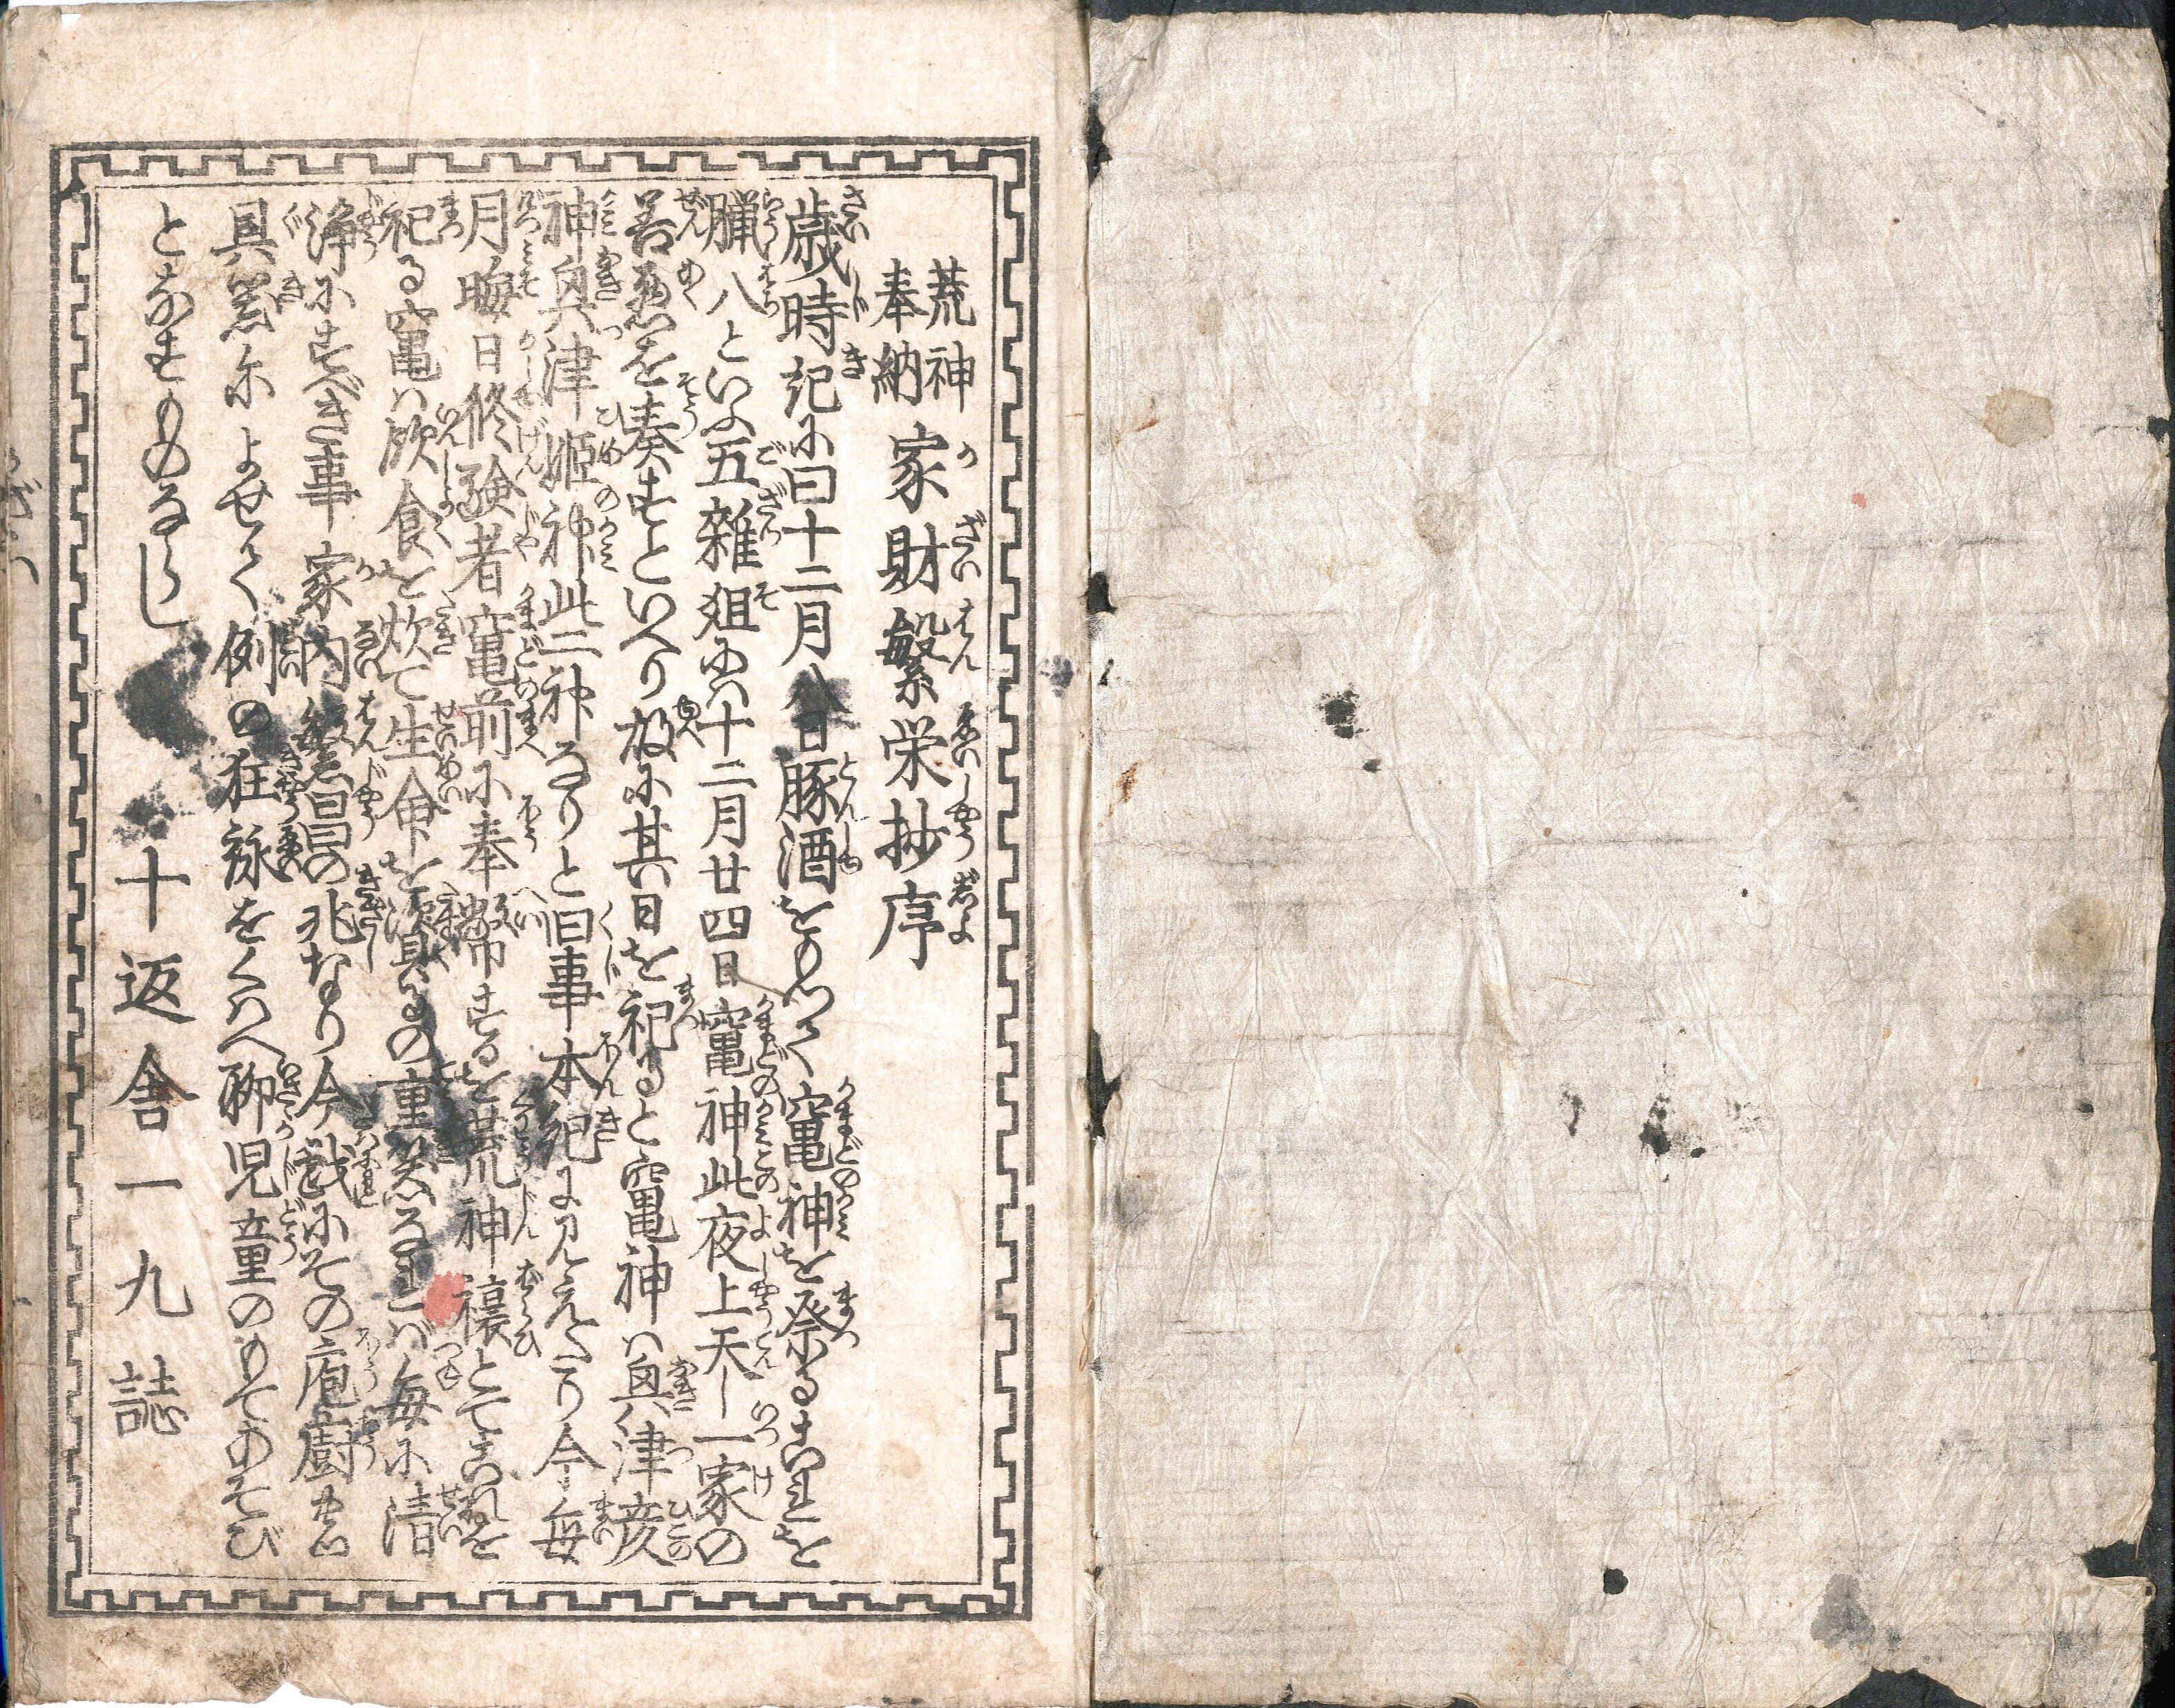 荒神
奉納
家財繁栄抄序
歳時記に曰十二月八日豚酒をもつて竈神を祭るこれを
臘八といふ五雑爼にハ十二月廿四日竈神此夜上天し一家の
善悪を奏すといへり故に其日を祀ると竈神ハ奥津彦
神奥津姫神此二神なりと旧事本紀に見えたり今毎
月晦日修験者竈前に奉幣するを荒神禳とてこれを
祀る竈ハ飲食を炊て生命を資るの重器なれバ毎に清
浄にすべき事家内繁昌の兆なり今戯にその庖廚の
具器によせて例の狂詠をくハへ聊児童のもてあそび
となすものならし
十返舎一九誌